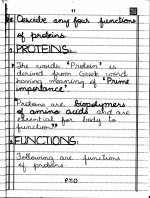 11
Describe any four functions
of proteins.
PROTEINS:
The words "Protein" is
derived from Greek word
having meaning of "Prime
importance".
"Proteins are biopolymers
of amino acids and are
essential for body to
function."
FUNCTIONS:
Following are functions
of proteins
P.T.O